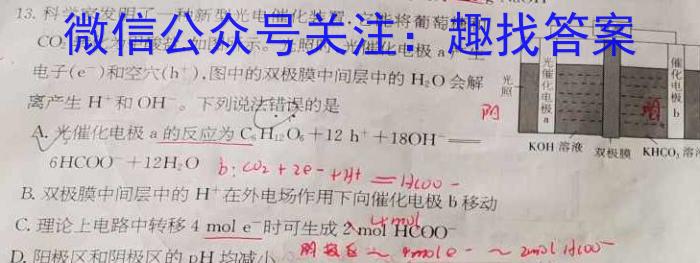 13. 科学家发明了一种新型光电催化装置,它能将葡萄糖
微信公众号关注:趣找答案
CO
光催化电极 a
电子(e⁻)和空穴(h⁺),图中的双极膜中间层中的 H₂O 会解
离产生 H⁺和 OH⁻。下列说法错误的是
A. 光催化电极 a 的反应为 C₆H₁₂O₆+12 h⁺+18OH⁻══
6HCOO⁻+12H₂O
b: CO₂ + 2e⁻ + H⁺ = HCOO⁻
B. 双极膜中间层中的 H⁺在外电场作用下向催化电极 b 移动
4mol
C. 理论上电路中转移 4 mol e⁻时可生成 2 mol HCOO⁻
D. 阳极区和阴极区的 pH 均减小
4mole⁻ ~ 2mol HCOO⁻
光照
光催化电极a
催化电极b
阴
KOH 溶液
双极膜
KHCO₃ 溶